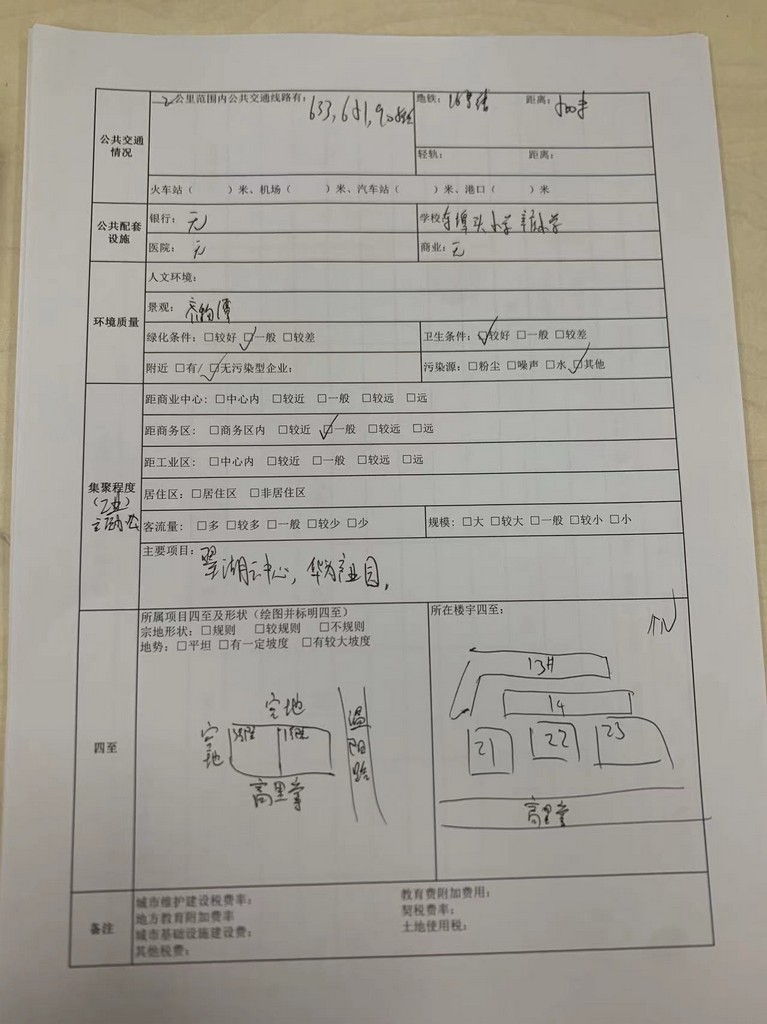 公共交通情况
2公里范围内公共交通线路有：633，641，
地铁：16号线 距离：
轻轨： 距离：
火车站（ ）米、机场（ ）米、汽车站（ ）米、港口（ ）米
公共配套设施
银行：无
学校
医院：无
商业：无
环境质量
人文环境：
景观：
绿化条件：□较好 □一般 □较差
卫生条件：□较好 □一般 □较差
附近 □有/ □无污染型企业：
污染源：□粉尘 □噪声 □水 □其他
集聚程度
（工业）
距商业中心：□中心内 □较近 □一般 □较远 □远
距商务区：□商务区内 □较近 □一般 □较远 □远
距工业区：□中心内 □较近 □一般 □较远 □远
居住区：□居住区 □非居住区
客流量：□多 □较多 □一般 □较少 □少
规模：□大 □较大 □一般 □较小 □小
主要项目：翠湖云中心，华为产业园，
四至
所属项目四至及形状（绘图并标明四至）
宗地形状：□规则 □较规则 □不规则
地势：□平坦 □有一定坡度 □有较大坡度
空地
空地
温阳路
高里掌
所在楼宇四至：
N
13#
14
21 22 23
高里掌
备注
城市维护建设税费率：
教育费附加费用：
地方教育附加费率
契税费率：
城市基础设施建设费：
土地使用税：
其他税费：